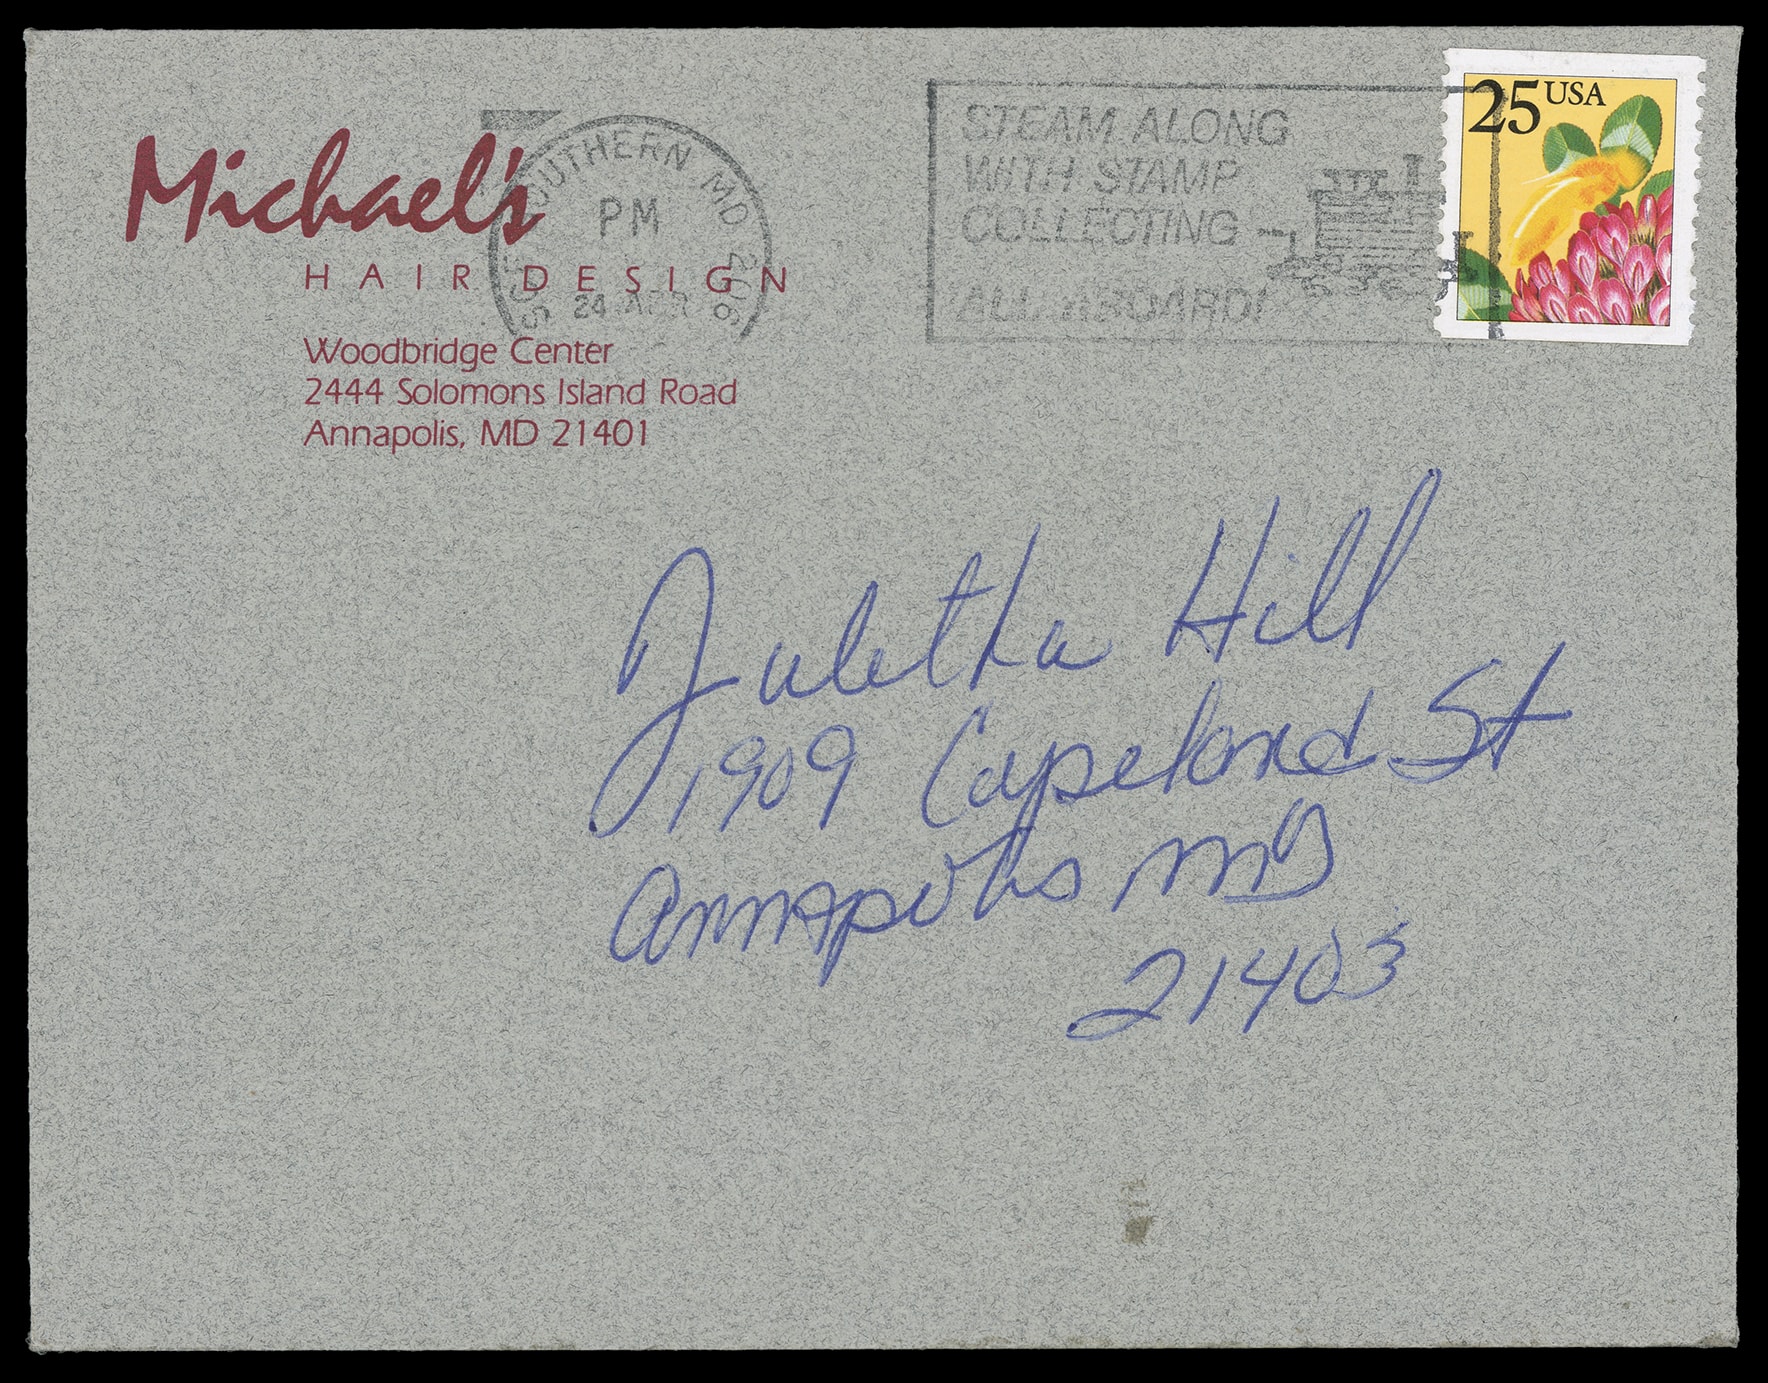 Michael's
HAIR DESIGN
Woodbridge Center
2444 Solomons Island Road
Annapolis, MD 21401
SOUTHERN MD 206
PM
24 APR
STEAM ALONG
WITH STAMP
COLLECTING
ALL ABOARD!
25 USA
Juletha Hill
1909 Copeland St
Annapolis MD
21403